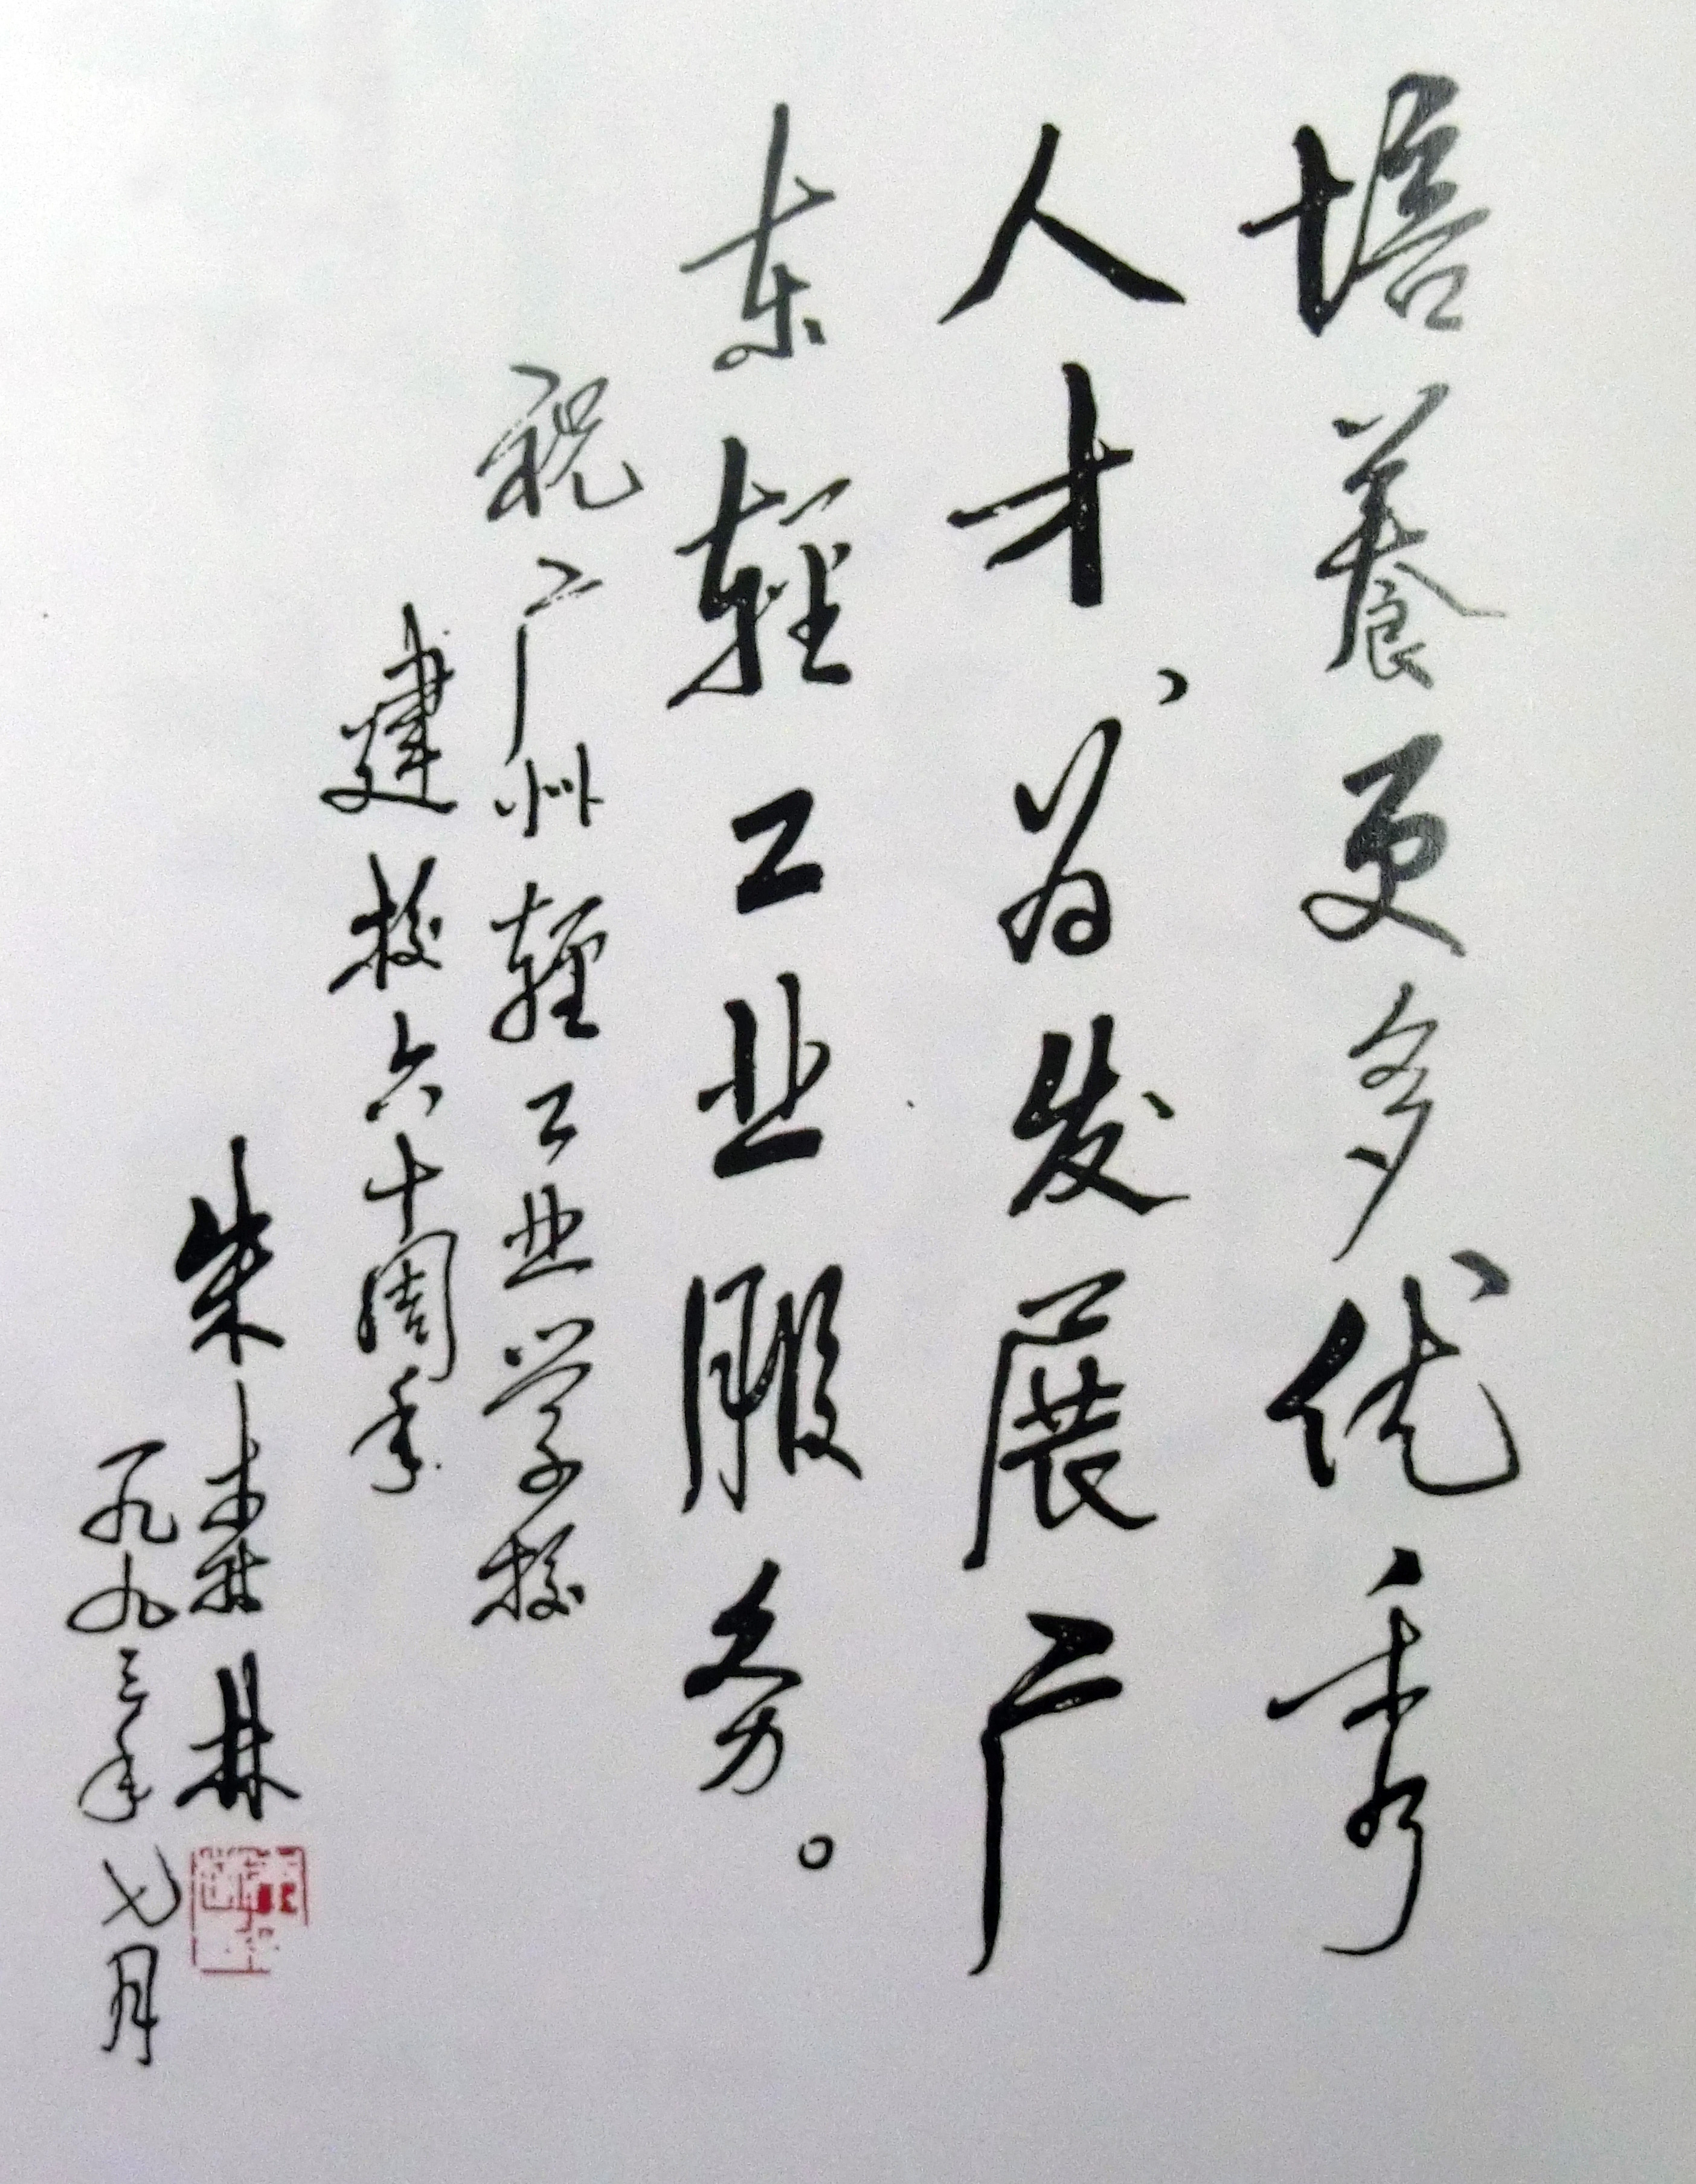 培養更多优秀
人才、为发展广
东輕工业服务。
祝广州輕工业学校
建校六十周年
朱森林
一九九三年七月